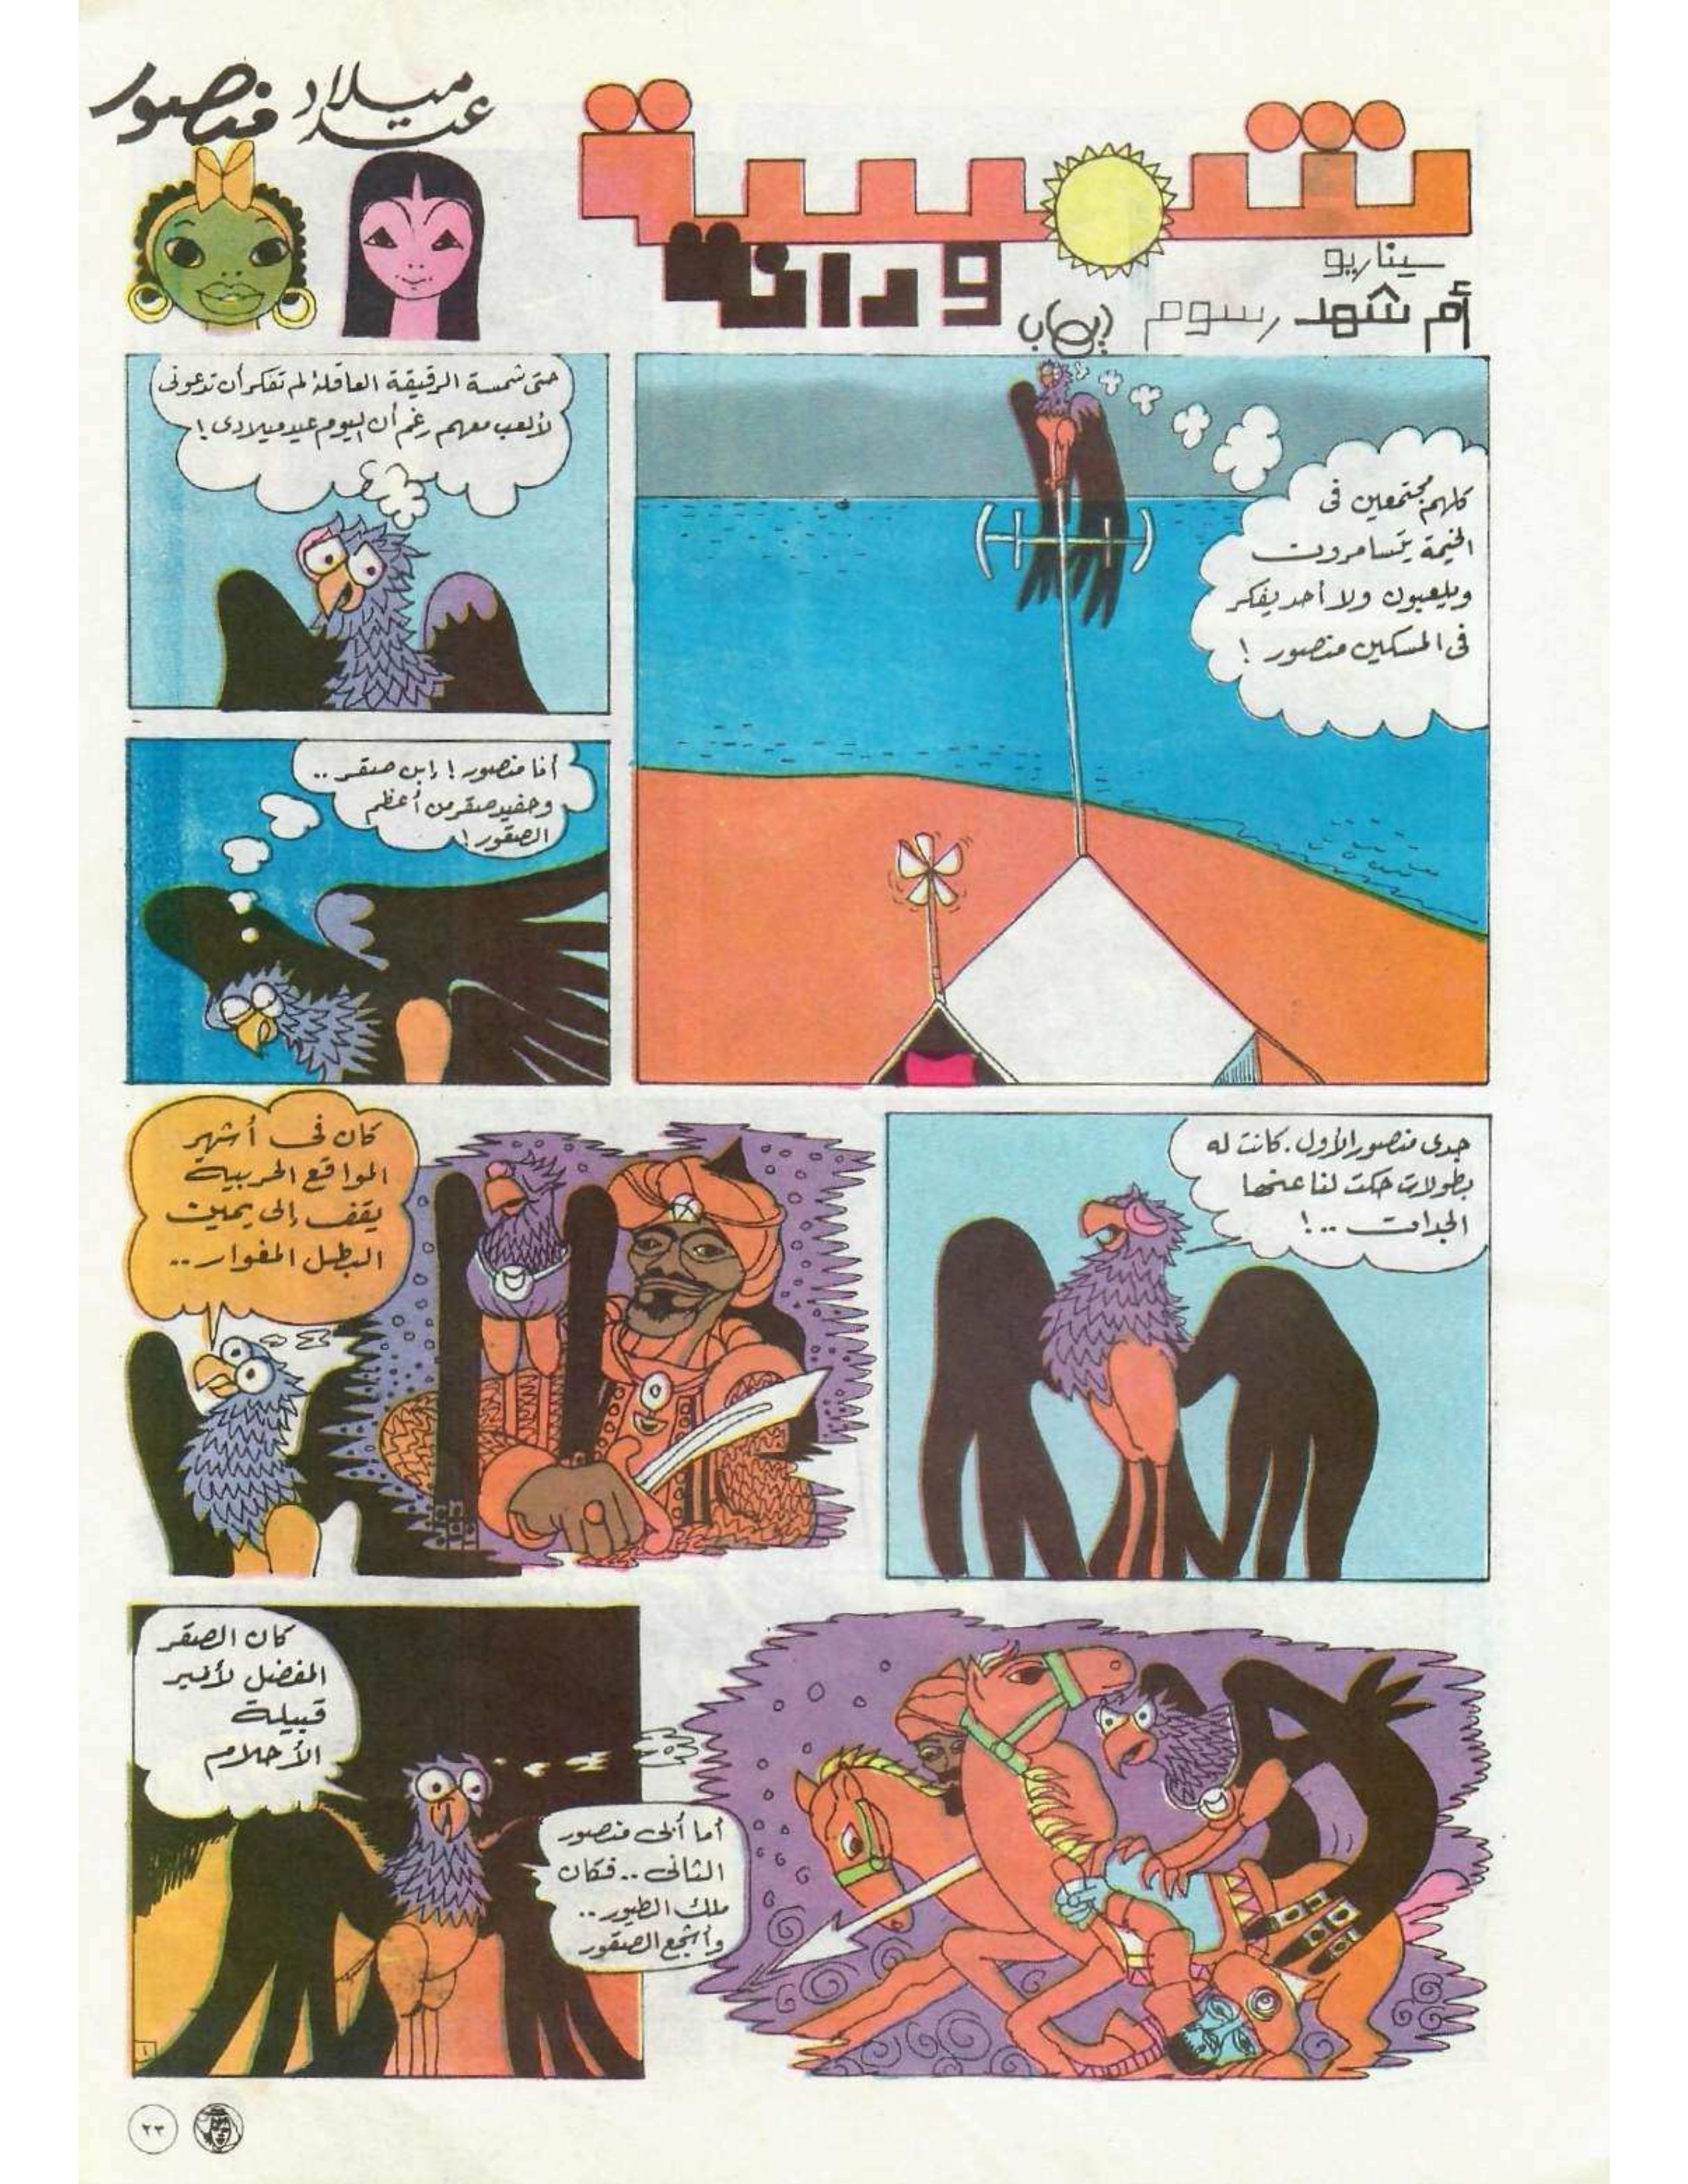 شمسة
ودانة
عيد ميلاد منصور
سيناريو
أم شهد رسوم إيهاب
كلهم مجتمعين فى
الخيمة يتسامرون
ويلعبون ولا أحد يفكر
فى المسكين منصور !
حتى شمسة الرقيقة العاقلة لم تفكر أن تدعونى
لألعب معهم رغم أن اليوم عيد ميلادى !
أنا منصور ! إبن صقر ..
وحفيد صقر من أعظم
الصقور !
جدى منصور الأول . كانت له
بطولات حكت لنا عنها
الجدات .. !
كان فى أشهر
المواقع الحربية
يقف إلى يمين
البطل المغوار ..
أما أبى منصور
الثانى .. فكان
ملك الطيور ..
وأشجع الصقور
كان الصقر
المفضل لأمير
قبيلة
الأحلام
١
٢٣